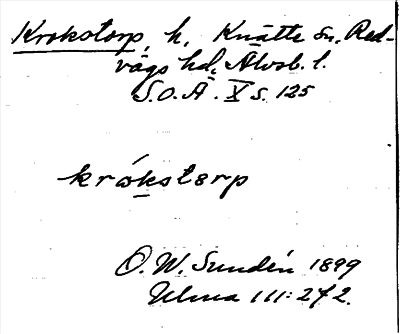 Krokstorp, h, Knätte sn. Red-
vägs hd, Älvsb. l.
S.O.Ä. X s. 125
krókstorp
O. W. Sundén 1899
Ulma 111:272.